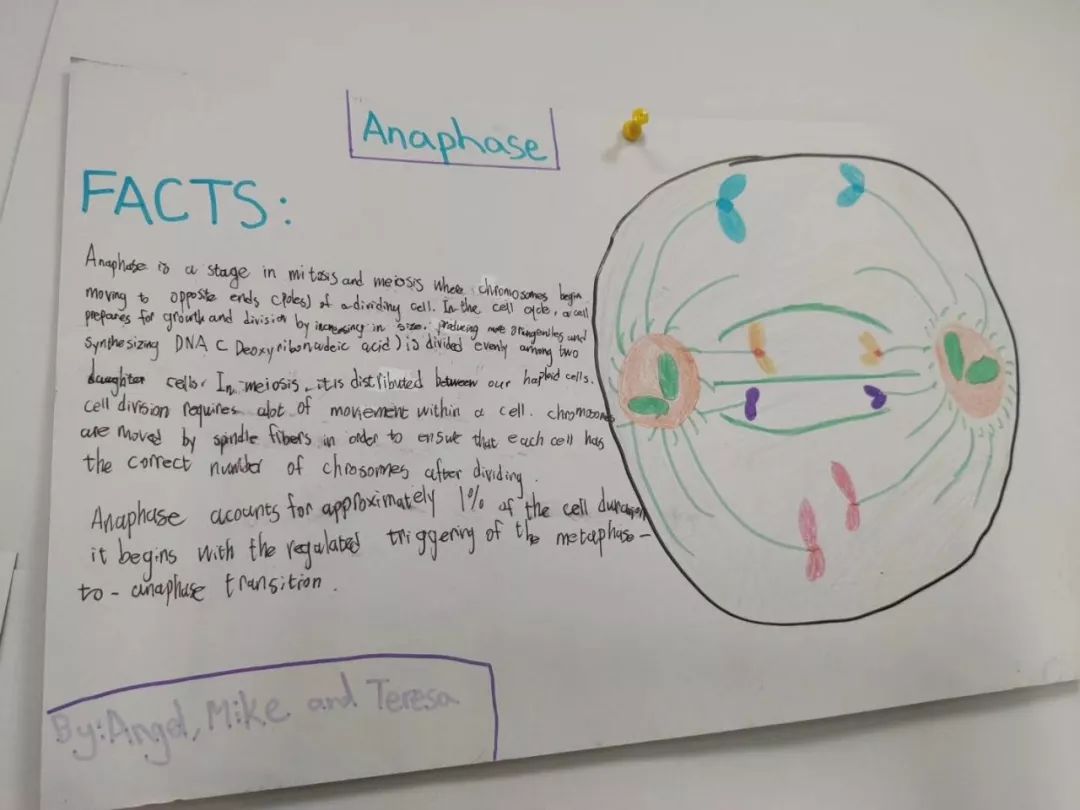 Anaphase
FACTS:
Anaphase is a stage in mitosis and meiosis where chromosomes begin
moving to opposite ends c(poles) of a dividing cell. In the cell cycle, a cell
prepares for growth and division by increasing in size. producing more organelles and
synthesizing DNA C Deoxyribonucleic acid) is divided evenly among two
daughter cells. In meiosis, it is distributed between our haploid cells.
cell division requires alot of movement within a cell. chromosomes
are moved by spindle fibers in order to ensure that each cell has
the correct number of chrosomes after dividing.
Anaphase acounts for approximately 1% of the cell duration
it begins with the regulated triggering of the metaphase-
to-anaphase transition.
By: Angel, Mike and Teresa